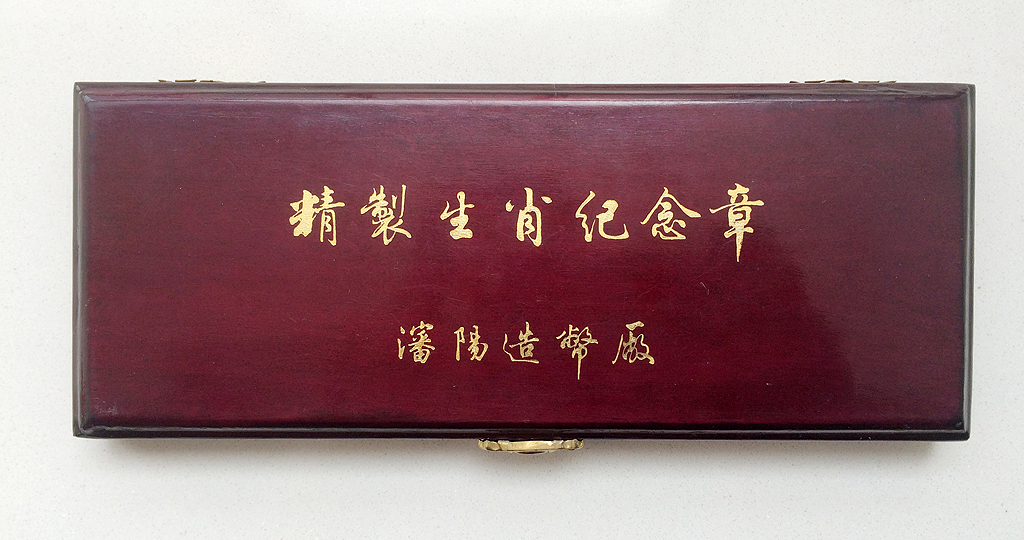 精製生肖纪念章
瀋陽造幣廠